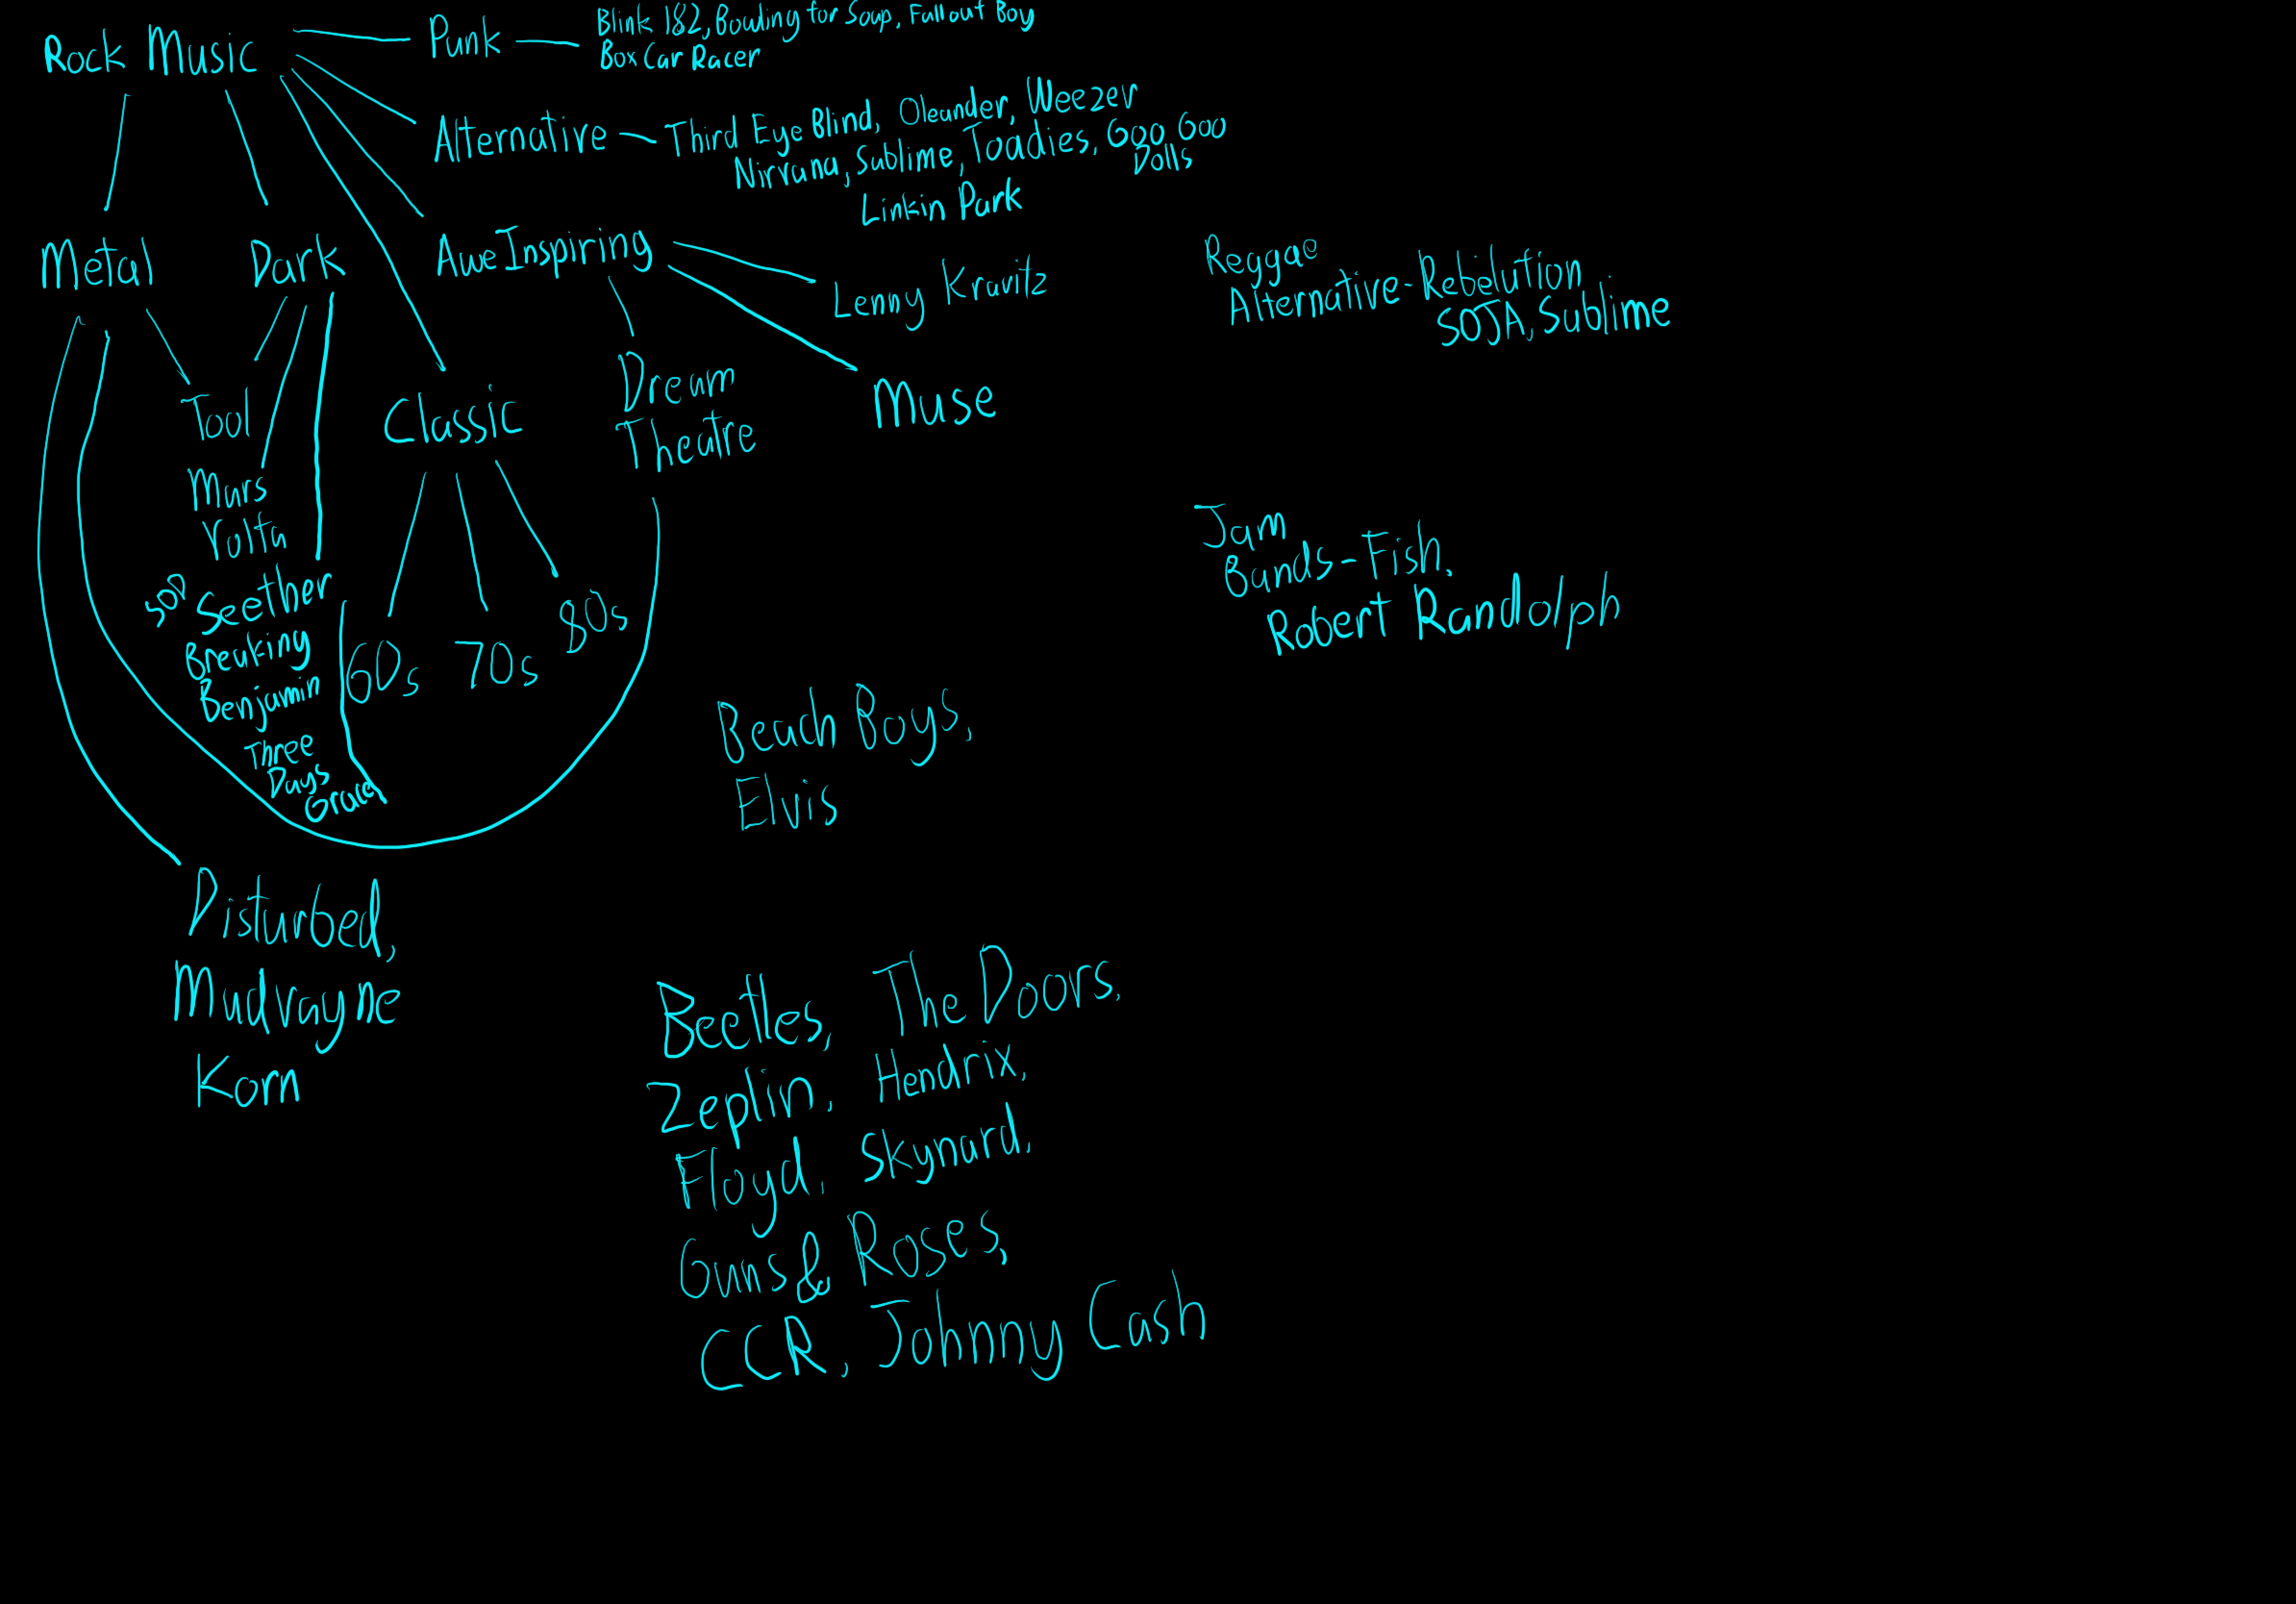 Rock Music
Punk
Blink 182, Bowling for Soup, Fall out Boy
Box Car Racer
Alternative
Third Eye Blind, Oleander, Weezer
Nirvana, Sublime, Toadies, Goo Goo
Dolls
Linkin Park
Metal
Dark
Awe Inspiring
Lenny Kravitz
Muse
Dream
Theatre
Tool
Mars
Volta
Classic
SOD
Seether
Breaking
Benjamin
Three
Days
Grace
60s
70s
80s
Reggae
Alternative - Rebelution
SOJA, Sublime
Jam
Bands - Fish,
Robert Randolph
Beach Boys,
Elvis
Disturbed,
Mudvayne
Korn
Beetles, The Doors,
Zeplin, Hendrix,
Floyd, Skynard,
Guns & Roses,
CCR, Johnny Cash